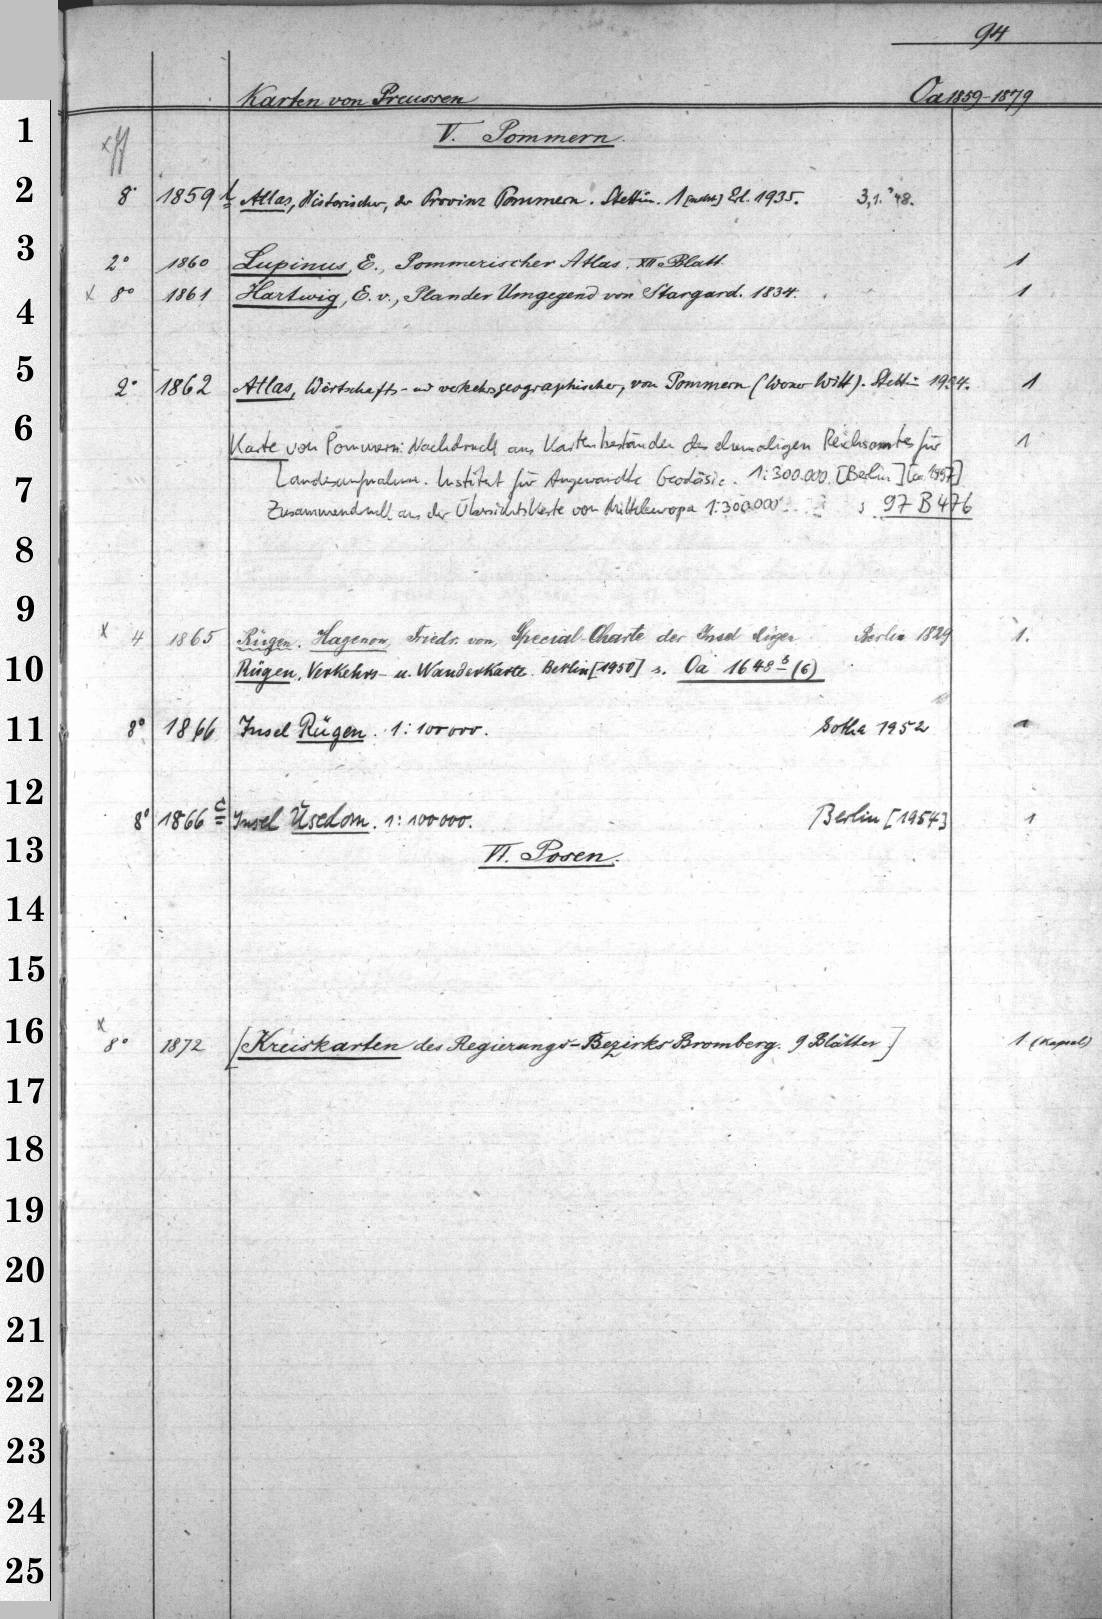 94
Karten von Preussen Oa 1859-1879
1
V. Pommern.
2
8° 1859 Atlas, Historischer, der Provinz Pommern. Stettin. 1 Erl. 1935. 3,1. '48.
3
2° 1860 Lupinus, E., Pommerischer Atlas. XII Blatt. 1
x 8° 1861 Hartwig, E. v., Plan der Umgegend von Stargard. 1834. 1
4
5
2° 1862 Atlas, Wirtschafts- und verkehrsgeographischer, von Pommern (Werner Witt). Stettin 1934. 1
6
Karte von Pommern: Nachdruck aus Kartenbeständen des ehemaligen Reichsamtes für 1
7
Landesaufnahme. Institut für Angewandte Geodäsie. 1:300.000 [Berlin] [ca. 1957]
Zusammendruck aus der Übersichtskarte von Mitteleuropa 1:300000 s 97 B 476
8
9
x 4 1865 Rügen. Hagenow, Friedr. von, Special-Charte der Insel Rügen Berlin 1829 1.
10
Rügen, Verkehrs- u. Wanderkarte. Berlin [1950] s. Oa 1648 b (6)
11
8° 1866 Insel Rügen. 1:100000. Gotha 1952 1
12
8° 1866 c Insel Usedom. 1:100000. Berlin [1954] 1
13
VI. Posen.
14
15
16
x 8° 1872 [Kreiskarten des Regierungs-Bezirks Bromberg. 9 Blätter.] 1 (Kapsel)
17
18
19
20
21
22
23
24
25